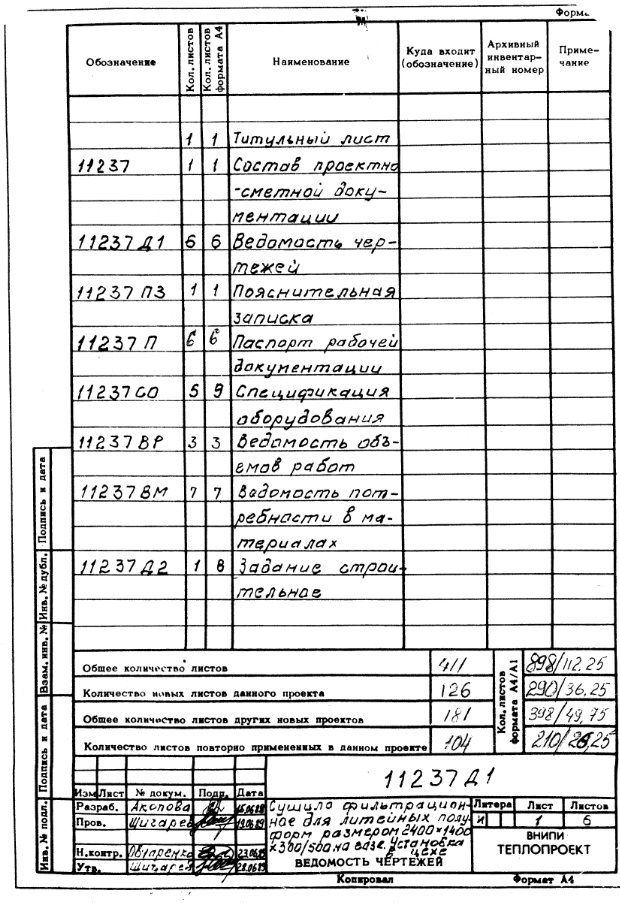 Форма
Обозначение Кол. листов Кол. листов формата А4 Наименование Куда входит (обозначение) Архивный инвентар-ный номер Приме-чание
1 1 Титульный лист
11237 1 1 Состав проектно
-сметной доку-
ментации
11237 Д1 6 6 Ведомость чер-
тежей
11237 ПЗ 1 1 Пояснительная
записка
11237 П 6 6 Паспорт рабочей
документации
11237 СО 5 9 Спецификация
оборудования
11237 ВР 3 3 Ведомость объ-
емов работ
11237 ВМ 7 7 Ведомость пот-
ребности в ма-
териалах
11237 Д2 1 8 Задание строи-
тельное
Общее количество листов 411 898/112.25
Количество новых листов данного проекта 126 290/36.25
Общее количество листов других новых проектов 181 398/49,75
Количество листов повторно примененных в данном проекте 104 210/26,25
Кол. листов формата А4/А1
Инв. № подл. Подпись и дата Взам. инв. № Инв. № дубл. Подпись и дата
11237 Д1
Изм Лист № докум. Подп. Дата
Разраб. Акопова 16.06.89
Пров. Шигарев 19.06.89
Н.контр. Овчаренко 23.06.89
Утв. Шигарев 28.06.89
Сушило фильтрацион-
ное для литейных полу-
форм размером 2400×1400
×300/500 на газе. Установка
в цехе
ВЕДОМОСТЬ ЧЕРТЕЖЕЙ
Литера Лист Листов
И 1 6
ВНИПИ
ТЕПЛОПРОЕКТ
Копировал Формат А4